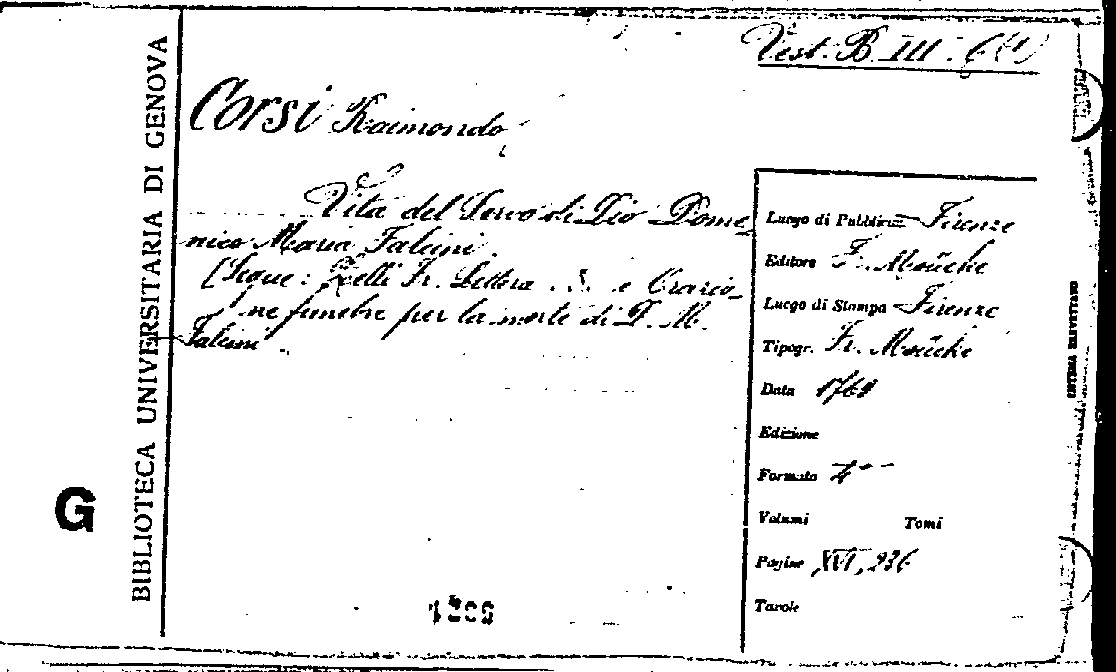 Vest. B. III. 6(1)
BIBLIOTECA UNIVERSITARIA DI GENOVA
Corsi Raimondo
Vita del Servo di Dio Dome-
nico Maria Falcini.
(Segue: Fr. Lettera e Orazio-
ne funebre per la morte di D. M.
Falcini.
Luogo di Pubblicaz Firenze
Editore F. Moücke
Luogo di Stampa Firenze
Tipogr. Fr. Moücke
Data
Edizione
Formato 4°
Volumi Tomi
Pagine XVI, 236
Tavole
G
SISTEMA BREVETTATO